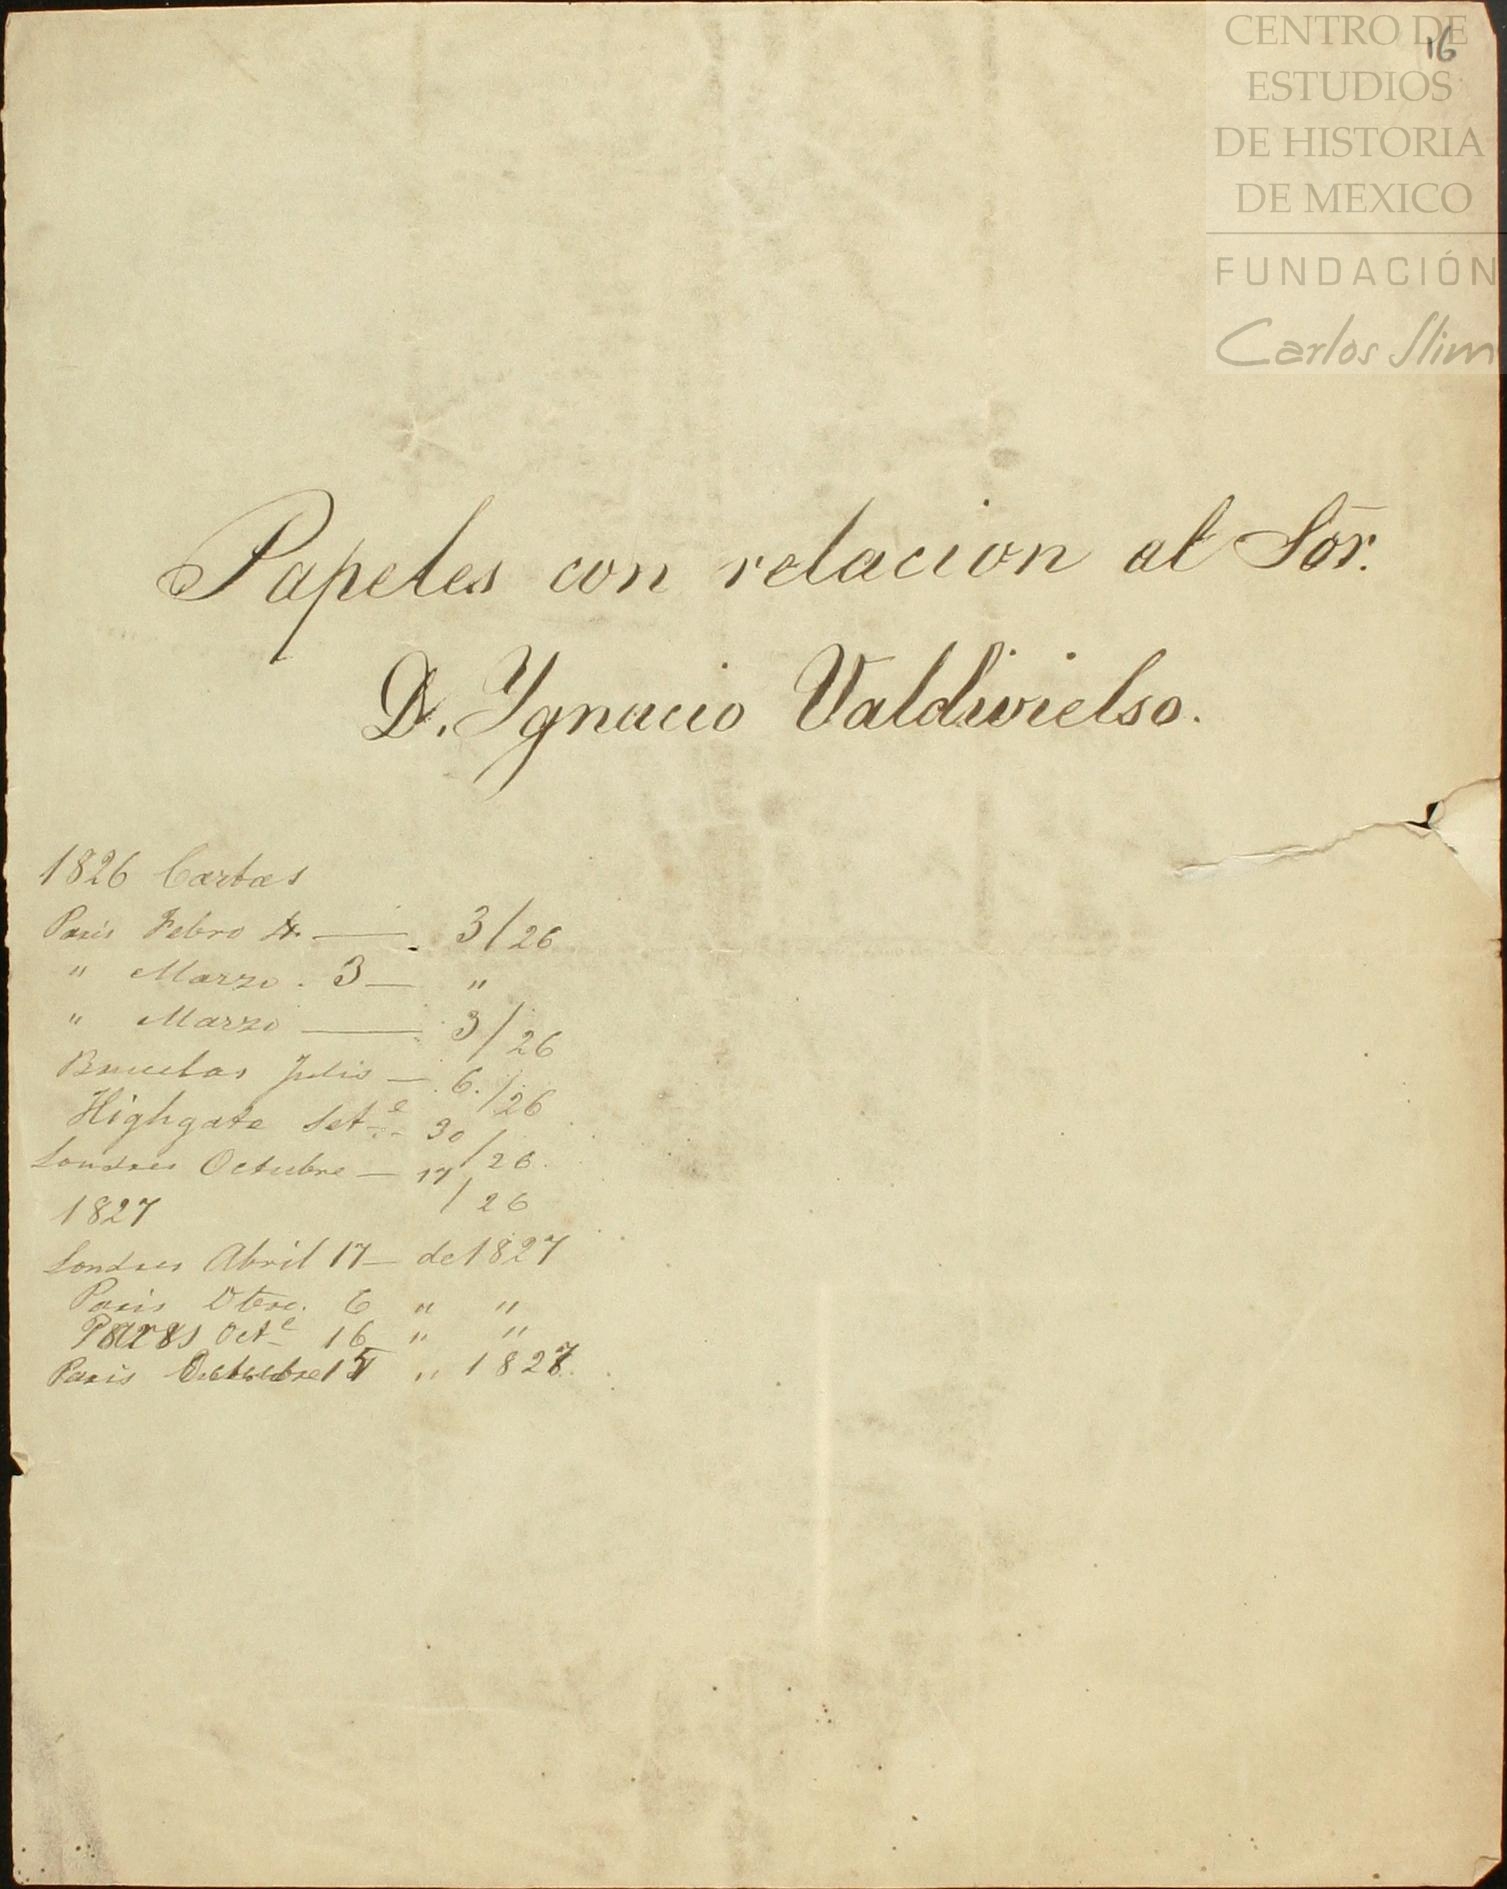 CENTRO DE
ESTUDIOS
DE HISTORIA
DE MEXICO
FUNDACIÓN
Carlos Slim
16
Papeles con relacion al Sōr.
D. Ygnacio Valdivielso.
1826 Cartas
Paris Febro — 3/26
" Marzo. 3 — "
" Marzo — 3/26
Bruselas Julio — 6./26
Highgate Set.e 30/26.
Londres Octubre — 17/26
1827
Londres Abril 17 — de 1827
Paris 6 " "
Oct.e 16 " "
Paris Octubre 15 " 1827.